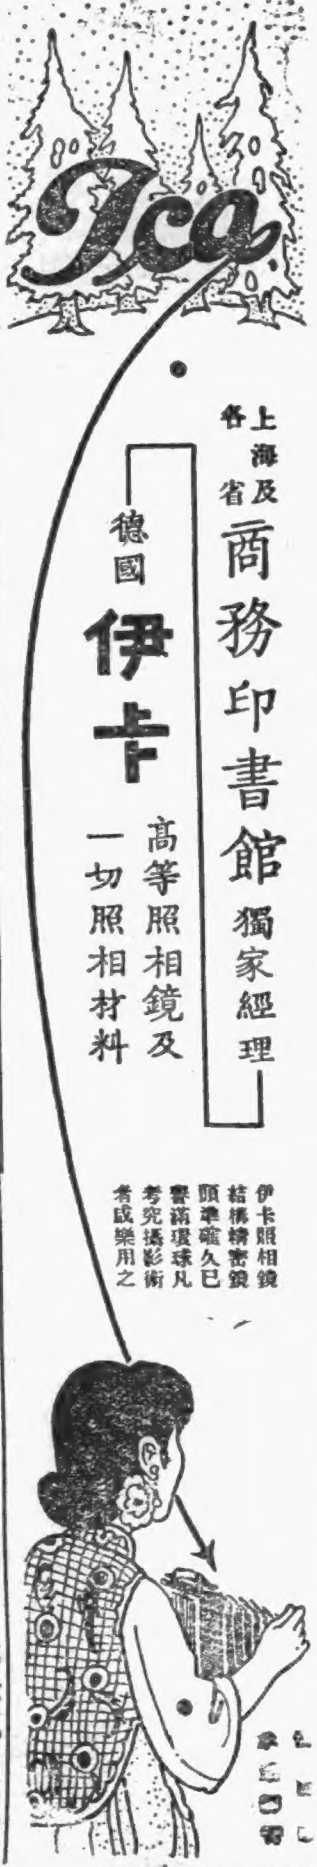 Ica
上海及
各省
商務印書館獨家經理
德國
伊卡
高等照相鏡及
一切照相材料
伊卡照相鏡
結構精密鏡
頭準確久已
譽滿環球凡
考究攝影術
者咸樂用之